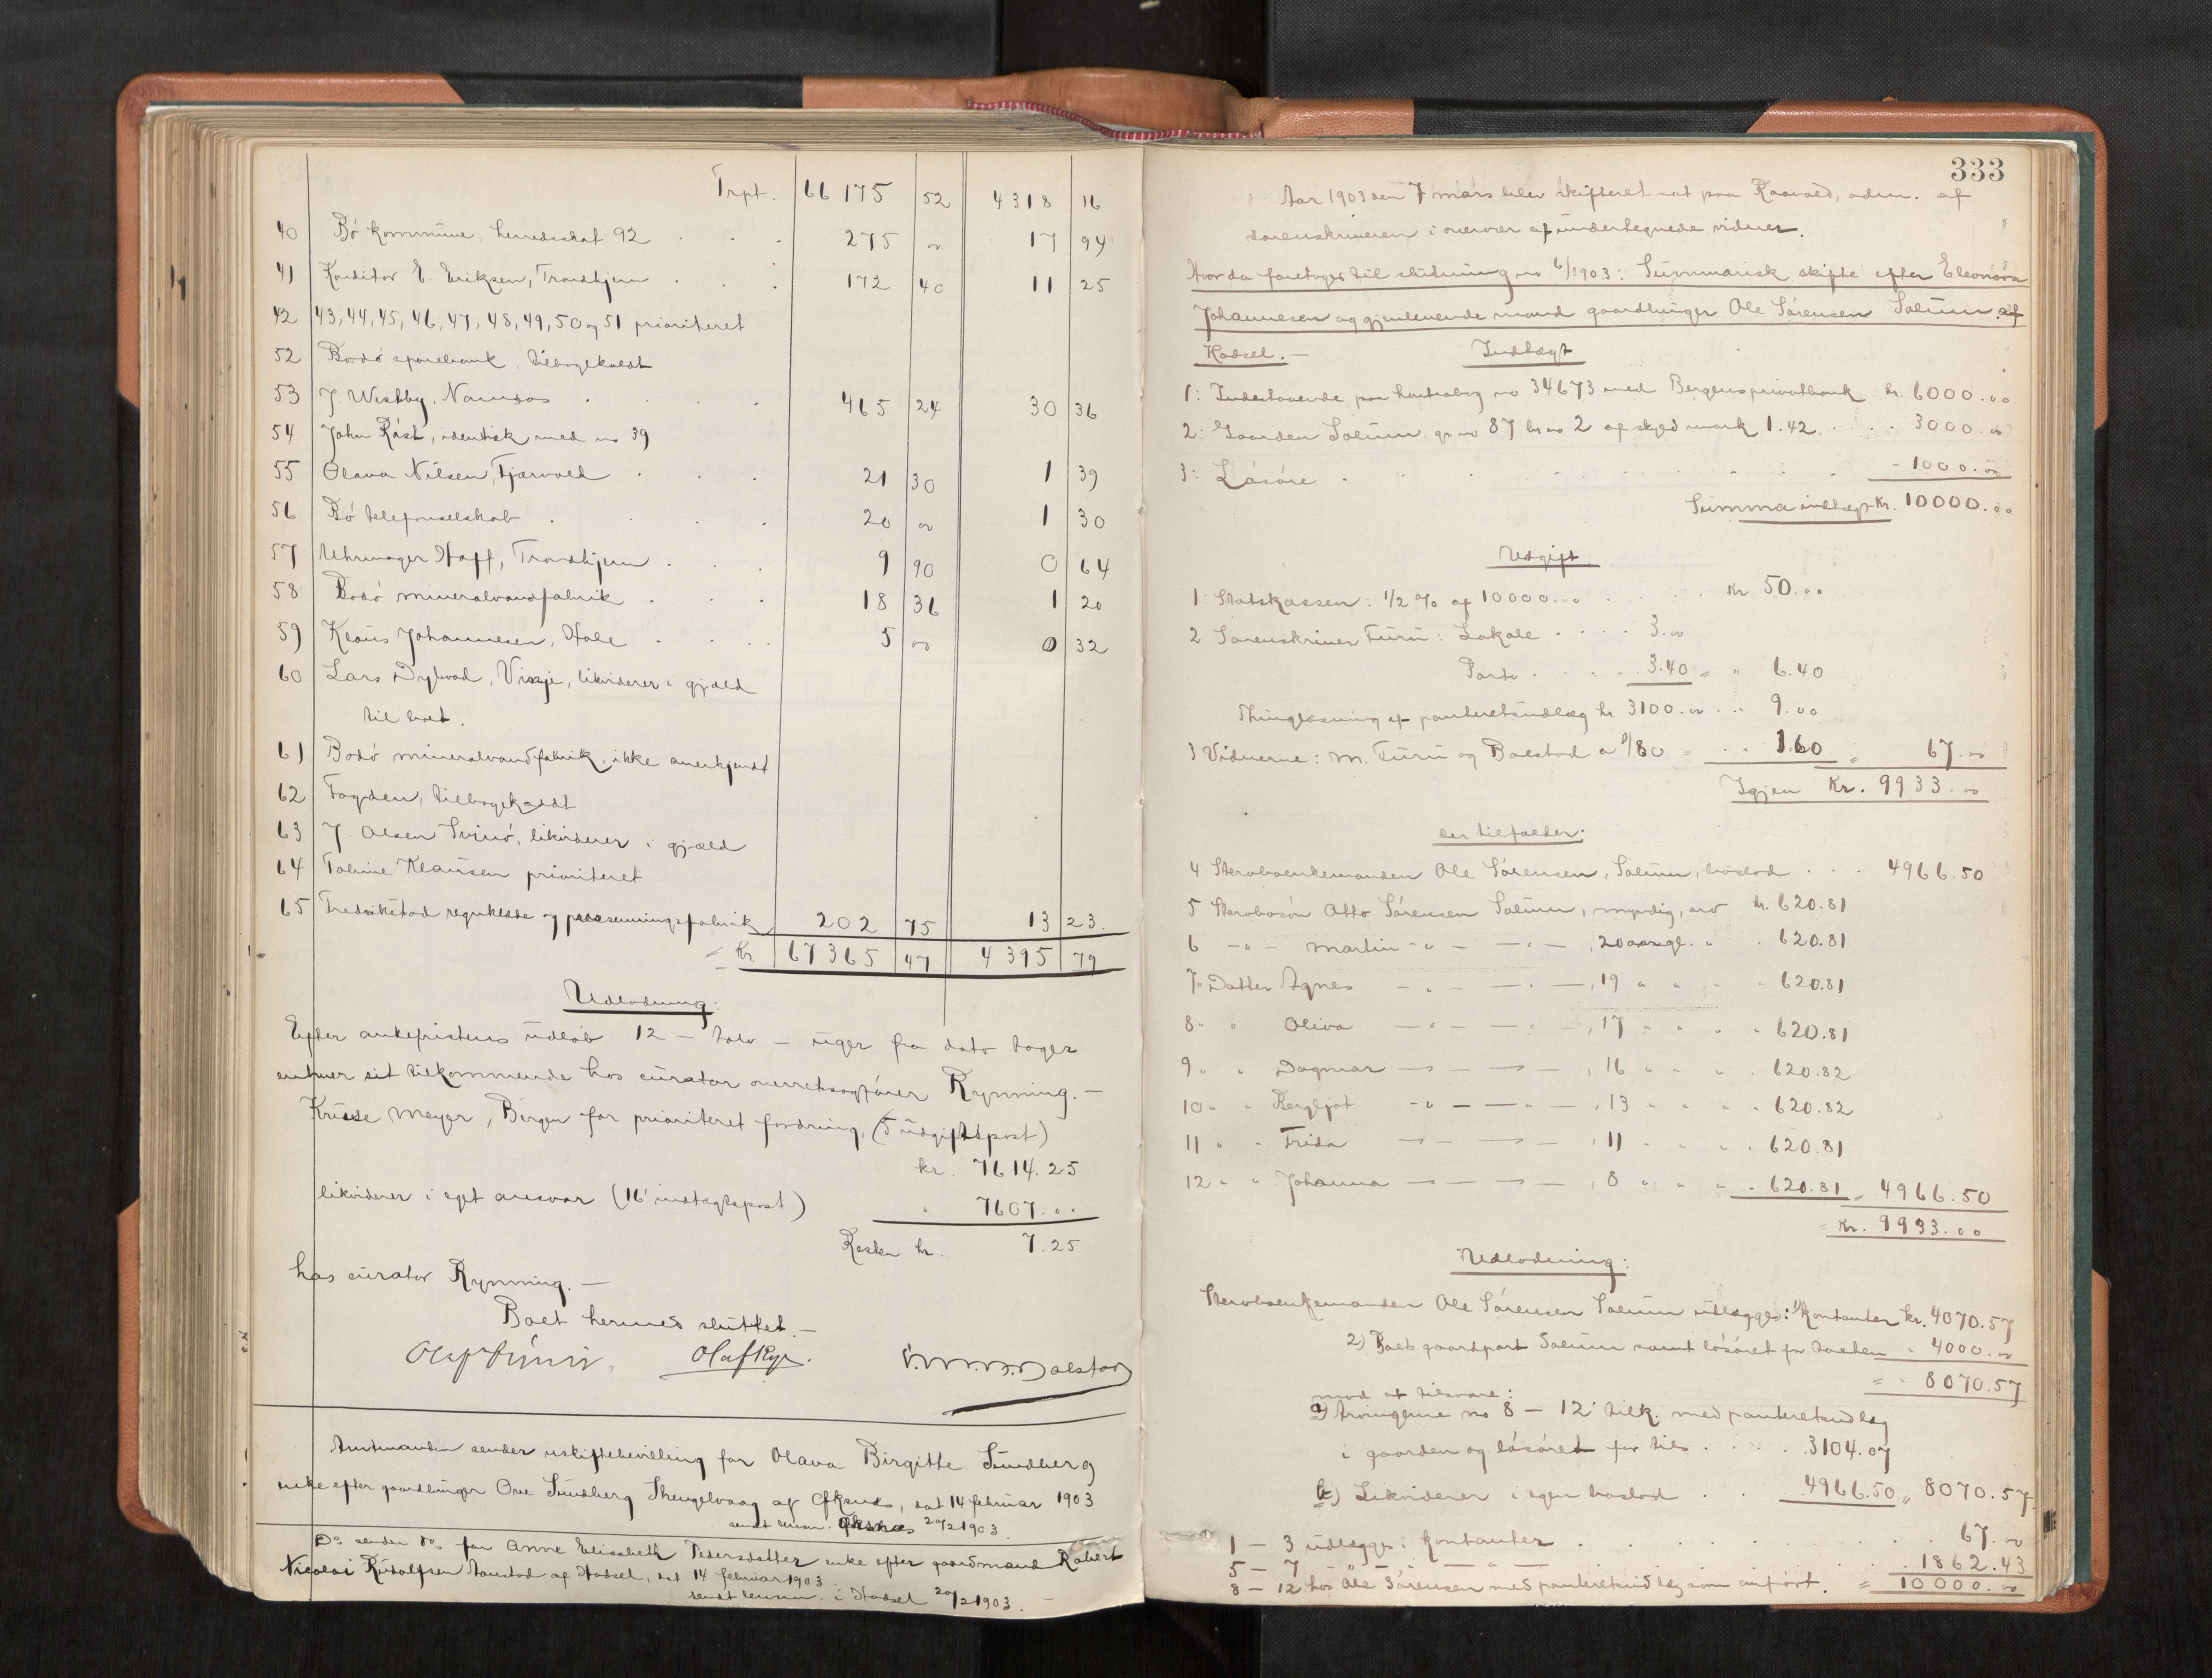 Trpt. 66 175 52 4318 16
40 Bø kommune, herredsskat 92 . . . 275 00 17 94
41 Konditor E. Eriksen, Trondhjem . . . 172 40 11 25
42 43, 44, 45, 46, 47, 48, 49, 50 og 51 prioriteret
52 Bodø sparebank, tilbagekaldt
53 J. Wistby, Namsos . . . 465 24 30 36
54 John Råst, identisk med no 39
55 Olava Nilsen, Fjærvold . . . 21 30 1 39
56 Bø telefonselskab . . . 20 00 1 30
57 Uhrmager Hoff, Trondhjem . . . 9 90 0 64
58 Bodø mineralvandfabrik . . . 18 36 1 20
59 Klaus Johannesen, Hole . . . 5 00 0 32
60 Lars Dybvad, Vinje, likviderer i gjæld
til boet.
61 Bodø mineralvandfabrik, ikke anerkjendt
62 Fogden, tilbagekaldt
63 J. Olsen Svinø, likviderer i gjæld
64 Toline Klausen prioriteret
65 Fredrikstad regnklæde og presenningsfabrik 202 75 13 23.
= Kr. 67365 47 4395 79
Udlodning:
Efter ankefristens udløb 12 – tolv – uger fra dato tager
enhver sit tilkommende hos curator overretssagfører Rynning. –
Krüsse Meyer, Bergen for prioriteret fordring, (5 udgiftspost)
kr. 7614.25
likviderer i eget ansvar (16' indtægtspost) " 7607.00
Resten kr. 7.25
hos curator Rynning. –
Boet hermed sluttet. –
Olaf Furu. Olaf Kye. Balstad
Amtmanden sender uskiftebevilling for Olava Birgitte Sundberg
enke efter gaardbruger Ove Sundberg Skugelvaag af Øksnes, dat 14 februar 1903
sendt lensm. Øksnes 20/2 1903.
Do sender do. for Anne Elisabeth Pedersdatter enke efter gaardmand Robert
Nicolai Rudolfsen Aanstad af Hadsel, dat 14 februar 1903
sendt lensm. i Hadsel 20/2 1903. –
333
Aar 1903 den 7 mars blev skifteret sat paa Raavold, adm. af
sorenskriveren i overvær af undertegnede vidner.
Hvor da foretoges til slutning no 6/1903: Summarisk skifte efter Eleonora
Johannesen og gjenlevende mand gaardbruger Ole Sørensen Solum af
Hadsel. – Indtægt
1: Indestaaende paa kontrabog no 34673 med Bergens privatbank kr. 6000.00
2: Gaarden Solum, gr no 87 br no 2 af skyld mark 1.42 . . . 3000.00
3: Løsøre . . . - 1000.00
Summa indtægt Kr. 10000.00
Udgift.
1: Statskassen: 1/2 % af 10000.00 . . . Kr 50.00
2 Sorenskriver Furu: Lokale . . . . 3.00
Porto . . . . 3.40 = " 6.40
Thinglæsning af panteretsudlæg kr 3100.00 . . " 9.00
3 Vidnerne: M. Furu og Balstad a 0/80 = . . 1.60 = 67.00
Igjen Kr. 9933.00
der tilfalder:
4 Stervboenkemanden Ole Sørensen, Solum, boslod . . . 4966.50
5 Stervbosøn Otto Sørensen Solum, myndig, arv kr. 620.81
6 – " – Martin – " – – " –, 20 aar gl. " . 620.81
7 " Datter Agnes – " – – " –, 19 " " – " 620.81
8 " " Oliva – " – – " –, 17 " " " " 620.81
9 " " Dagmar – " – – " –, 16 " " " . 620.82
10 " " Bergljot – " – – " –, 13 " " " " 620.82
11 " " Frida – " – – " –, 11 " " " . 620.81
12 " " Johanna – " – – " –, 8 " " " . 620.81 = 4966.50
= Kr. 9933.00
Udlodning:
Stervboenkemanden Ole Sørensen Solum udlægges: 1) Kontanter kr. 4070.57
2) Boets gaardpart Solum samt løsøret for taxten " 4000.00
= " 8070.57
mod at tilsvare:
a) Arvingerne no 8 – 12' tilk. med panteretsudlæg
i gaarden og løsøret for tils . . . . 3104.07
b) Likviderer i egen boslod . . 4966.50 " 8070.57
1 – 3 udlægges i kontanter . . . . 67.00
5 – 7 – " – i – " – . . . . 1862.43
8 – 12 hos Ole Sørensen med panteretsudlæg som anført. = 10000.00